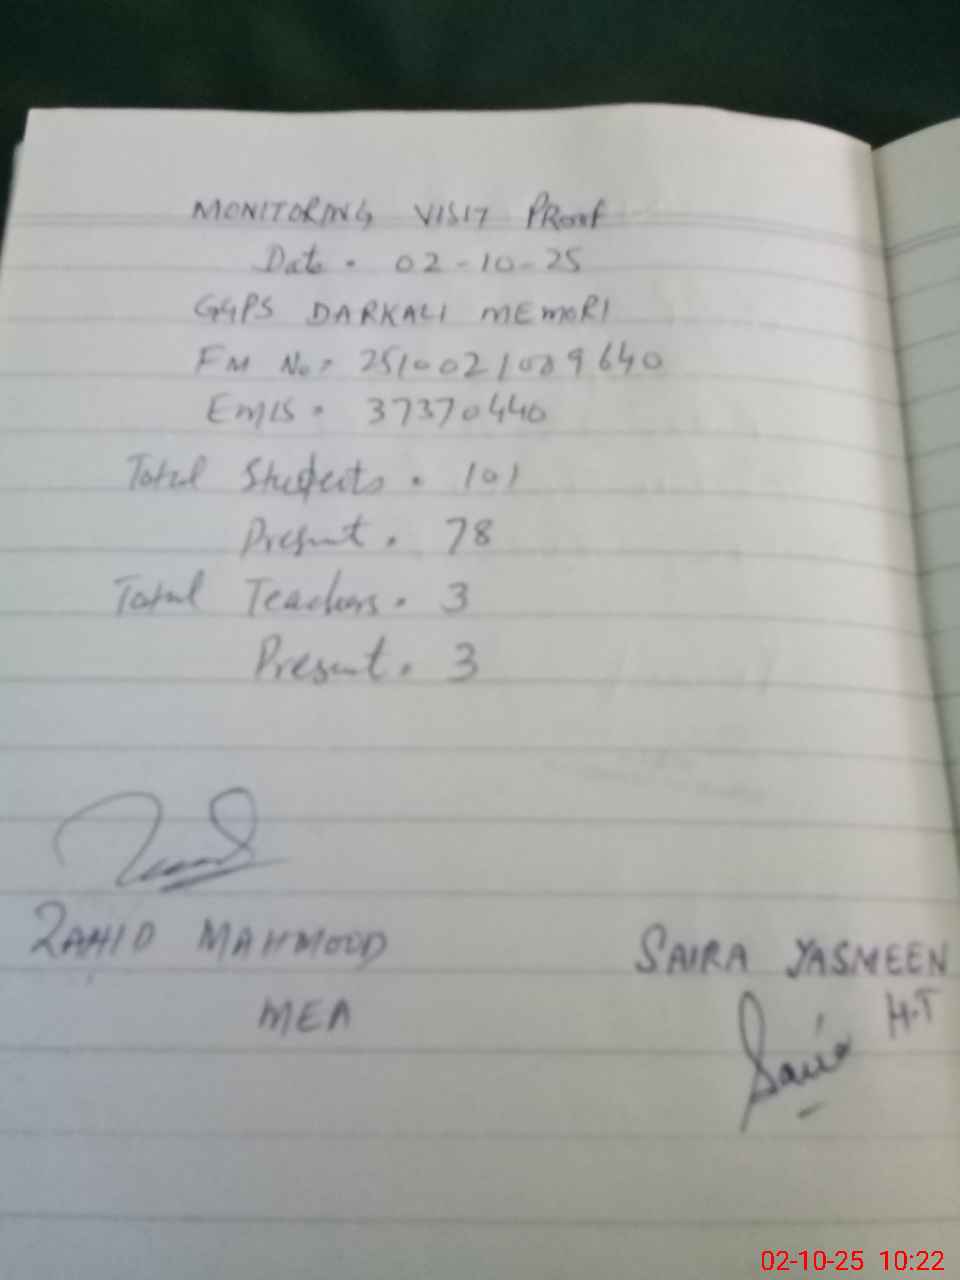 MONITORING VISIT PROOF
Date • 02-10-25
GGPS DARKALI MEMORI
FM No • 2510021089640
EMIS • 37370440
Total Students • 101
Present • 78
Total Teachers • 3
Present • 3
ZAHID MAHMOOD
MEA
SAIRA YASMEEN
H.T
Saira
02-10-25 10:22